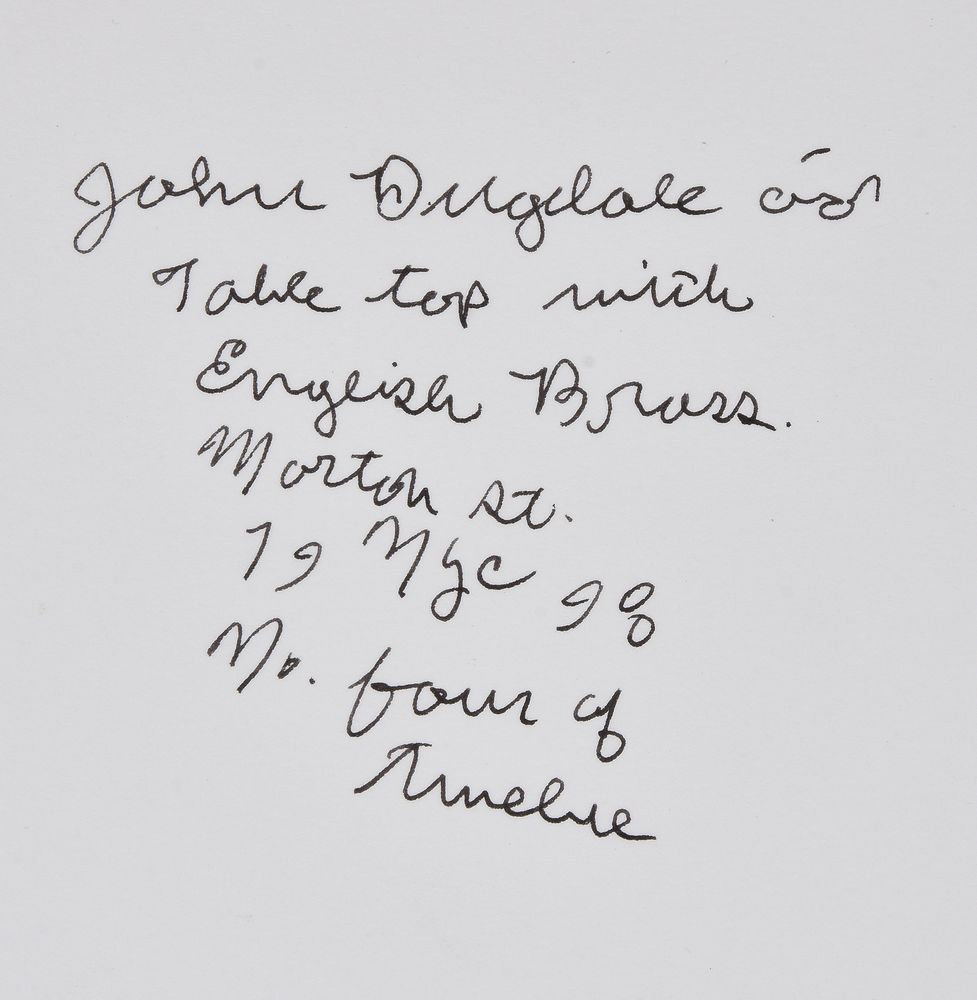 John Dugdale
Table top with
English Brass.
Morton St.
19 NYC 98
No. four of
Twelve